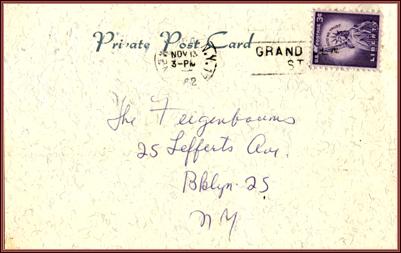 Private Post Card
N.Y.
NOV 13
3-PM
GRAND
ST
U.S. POSTAGE 3¢
LIBERTY
The Feigenbaums
25 Lefferts Ave.
Bklyn-25
NY